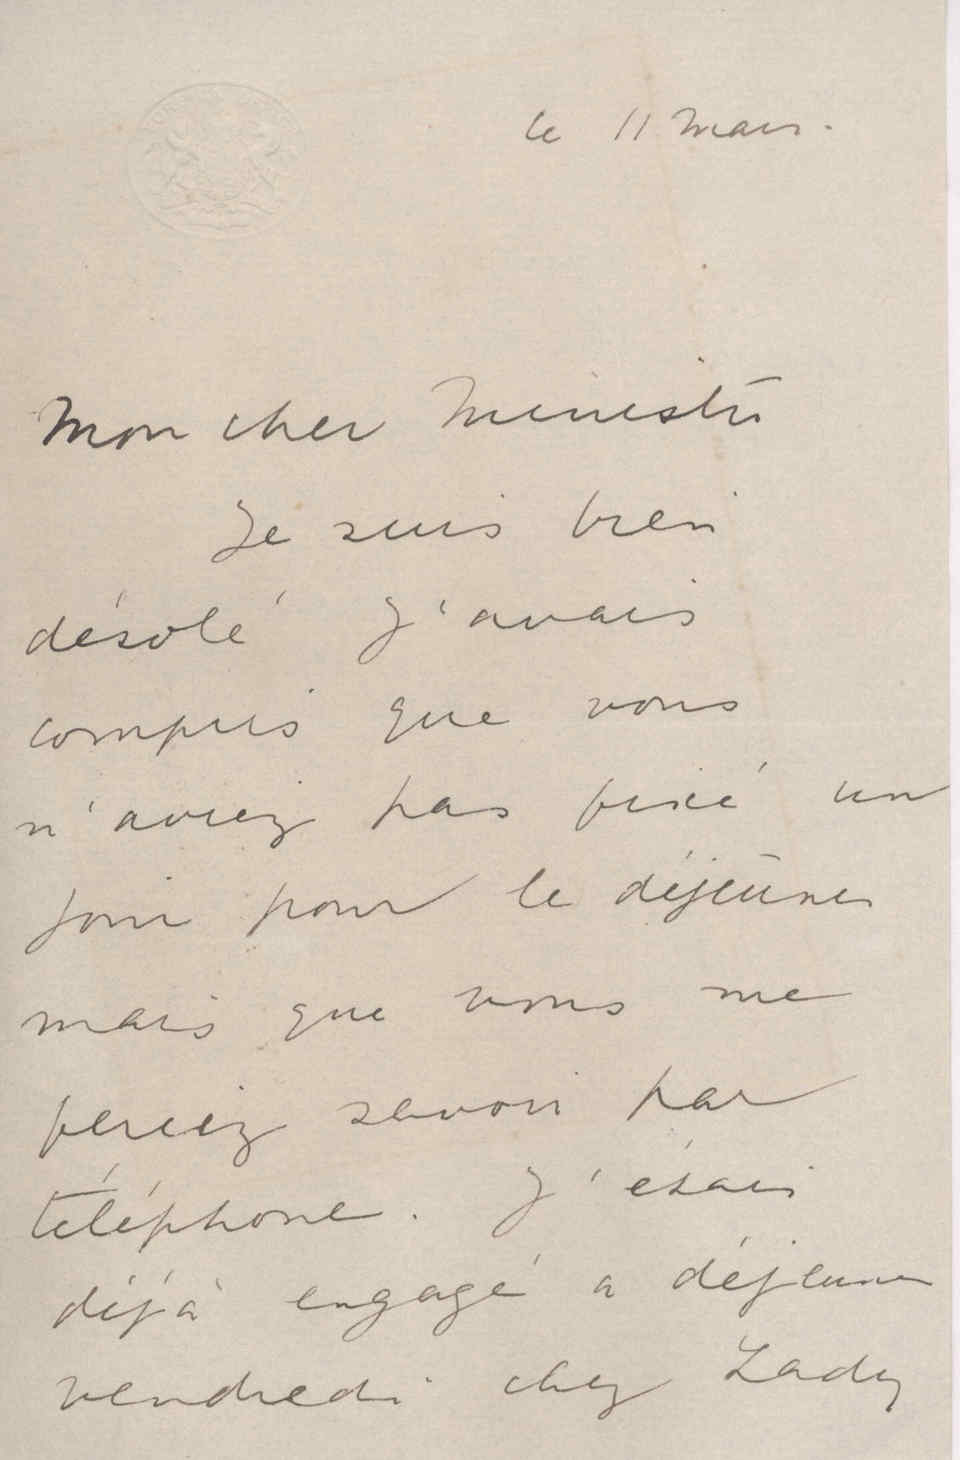 le 11 Mars.
Mon cher Ministre
Je suis bien
désolé J'avais
compris que vous
n'aviez pas fixé un
jour pour le déjeûner
mais que vous me
feriez savoir par
téléphone. J'étais
déjà engagé a déjeuner
vendredi chez Lady